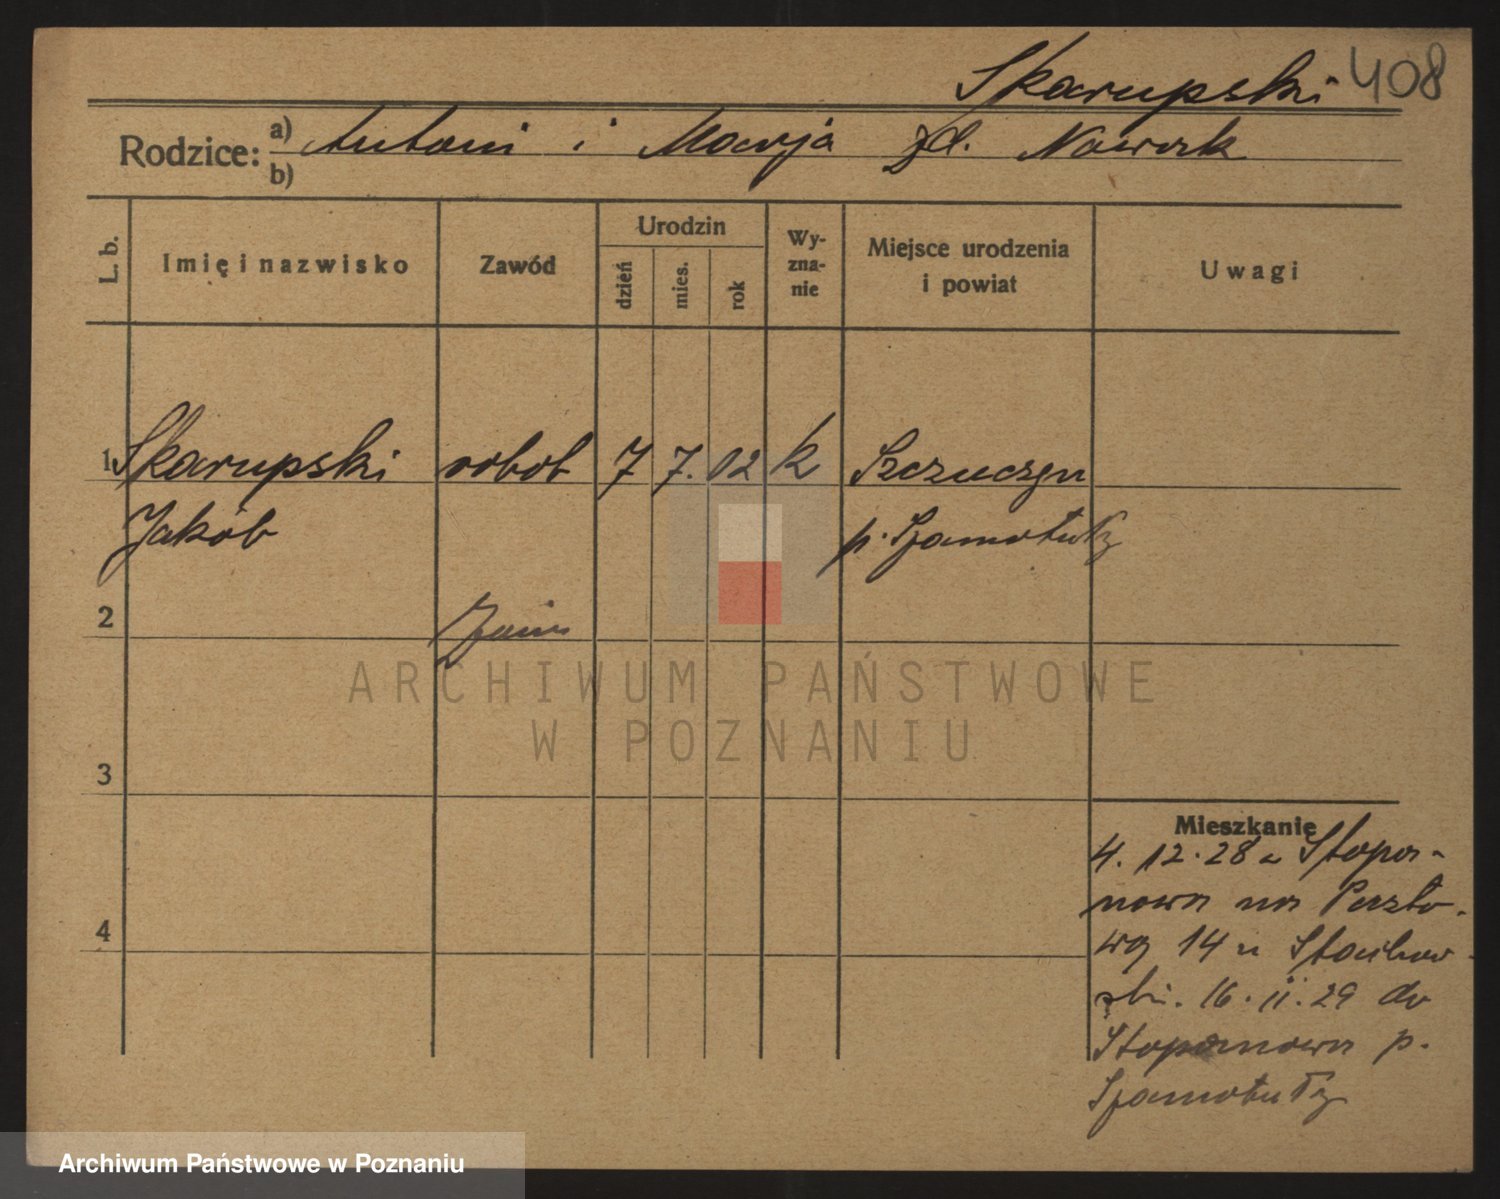 Skarupski 408
Rodzice: a) Antoni i Marja zd. Nowak
b)
L. b. Imię i nazwisko Zawód Urodzin dzień mies. rok Wy-zna-nie Miejsce urodzenia i powiat Uwagi
1 Skarupski robot 7 7. 02 k Szczuczyn
Jakób p. Szamotuły
2
3
Mieszkanie
4. 12. 28 z Stopa-
nowa na Poczto-
4
wą 14 u Stachow-
ski. 16. II. 29 do
Stopanowa p.
Szamotuły
ARCHIWUM PAŃSTWOWE
W POZNANIU
Archiwum Państwowe w Poznaniu